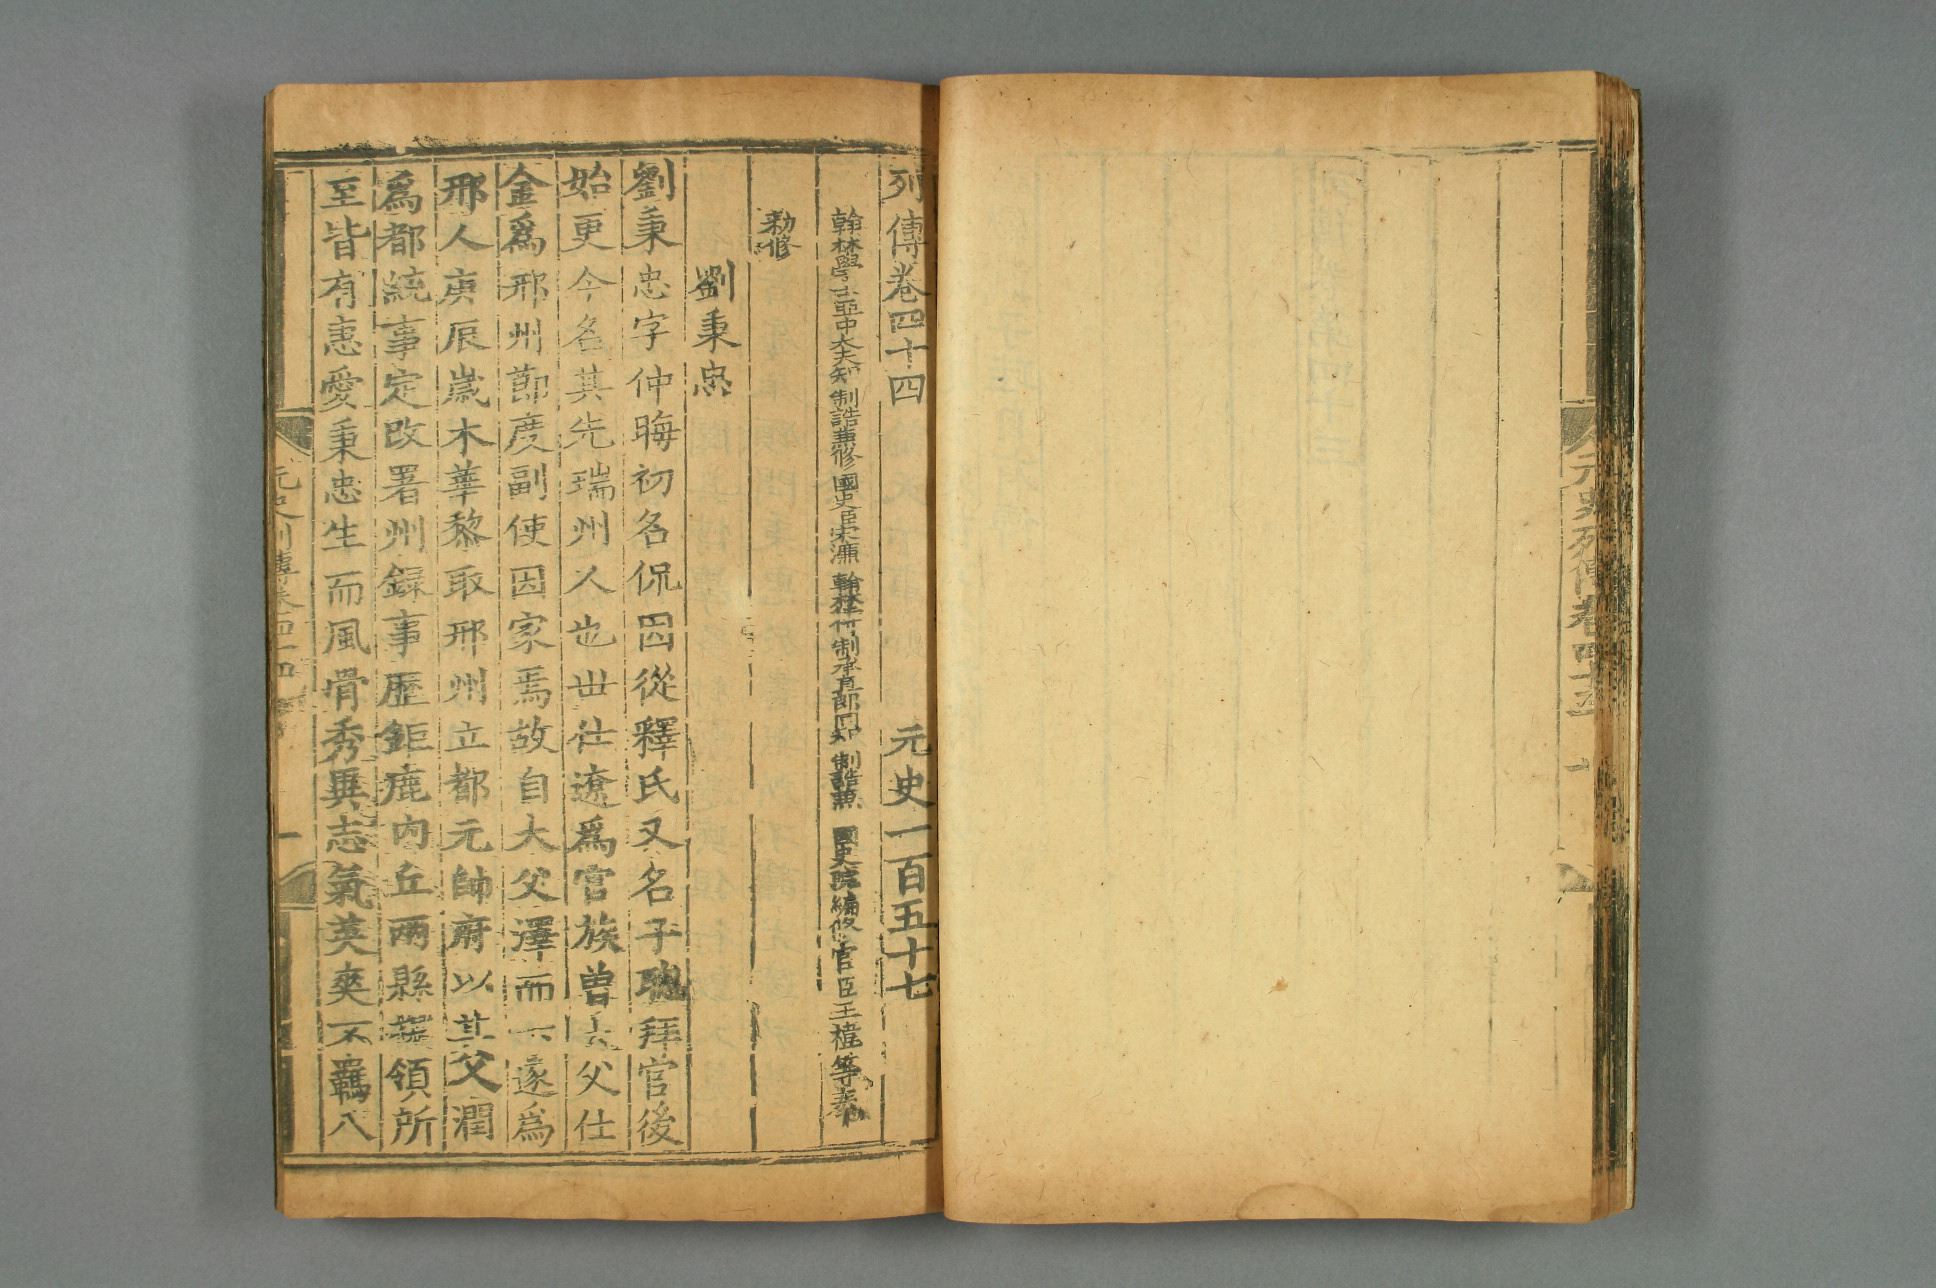 元史列傳卷四十三
列傳卷四十四 元史一百五十七
翰林學士亞中大夫知制誥兼修國史臣宋濂翰林待制承直郎同知制誥兼國史院編修官臣王禕等奉
勑修
劉秉忠
劉秉忠字仲晦初名侃因從釋氏又名子聰拜官後
始更今名其先瑞州人也世仕遼爲官族曾大父仕
金爲邢州節度副使因家焉故自大父澤而下遂爲
邢人庚辰歲木華黎取邢州立都元帥府以其父潤
爲都統事定改署州錄事歷鉅鹿內丘兩縣提領所
至皆有惠愛秉忠生而風骨秀異志氣英爽不羈八
元史列傳卷四十四 一